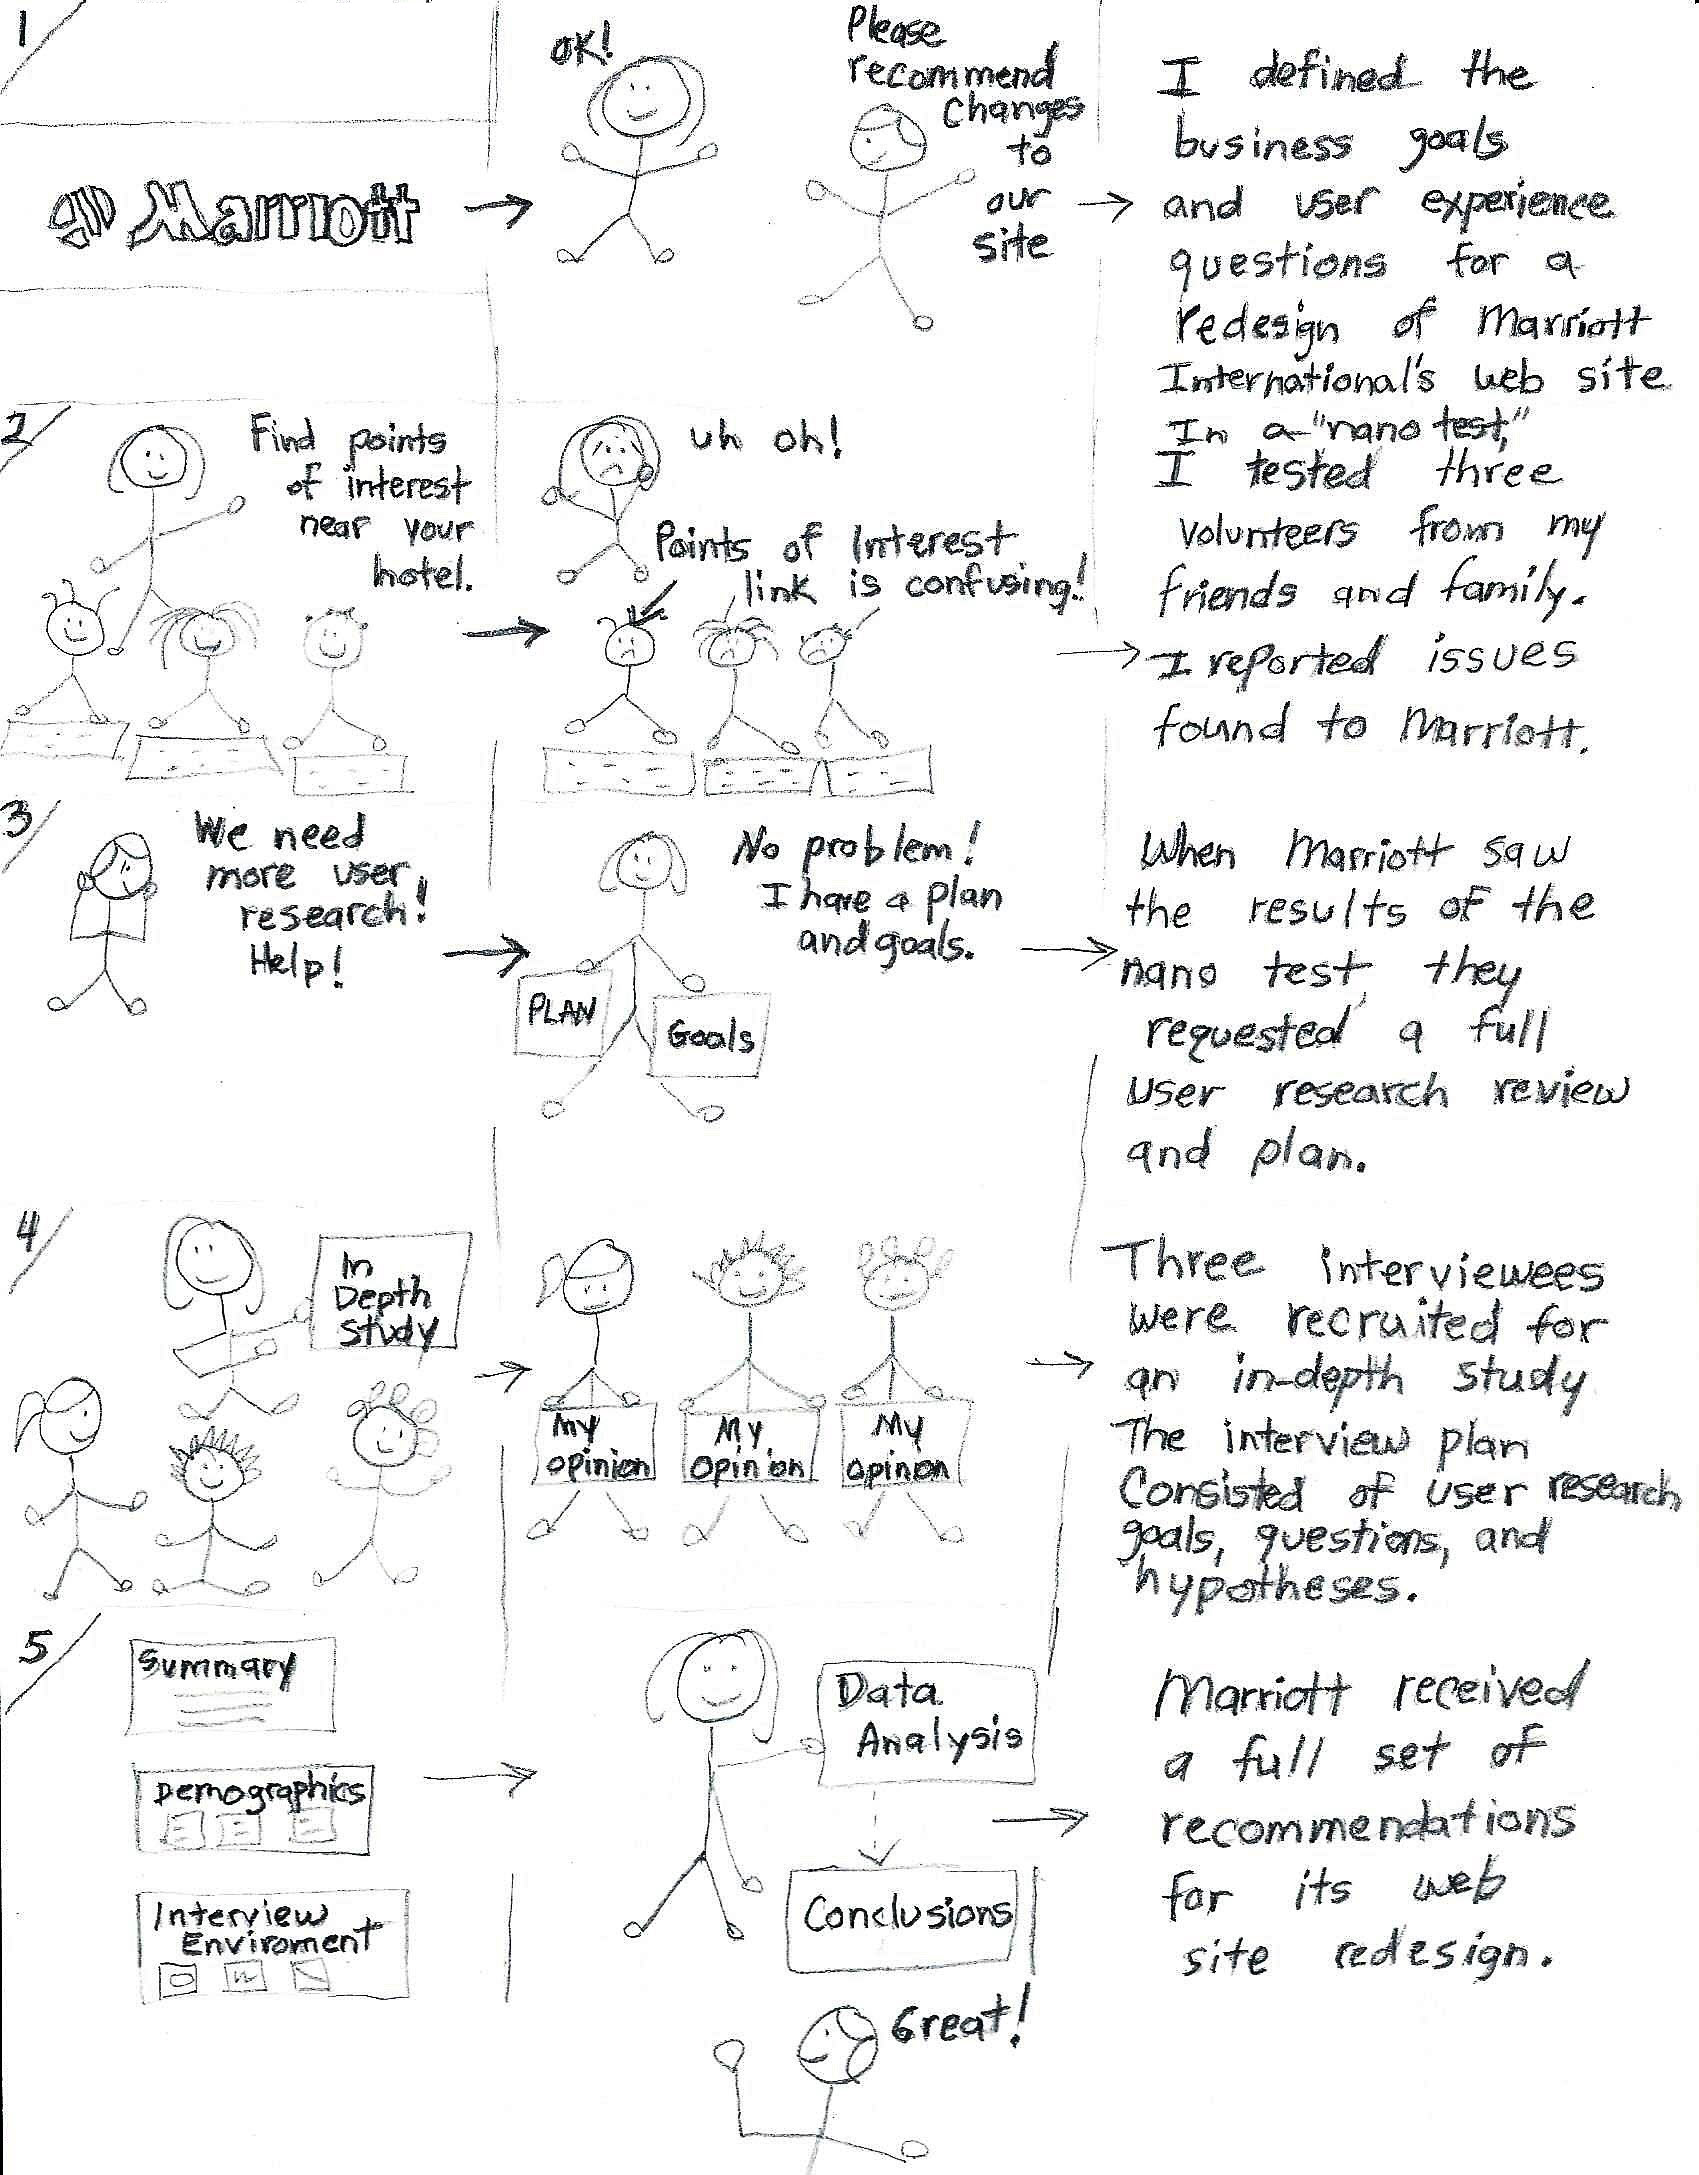 1/
Marriott
OK!
Please
recommend
changes
to
our
site
I defined the
business goals
and user experience
questions for a
redesign of Marriott
International's web site
In a "nano test,"
I tested three
volunteers from my
friends and family.
I reported issues
found to Marriott.
2/
Find points
of interest
near your
hotel.
uh oh!
Points of Interest
link is confusing!
3/
We need
more user
research!
Help!
No problem!
I have a plan
and goals.
PLAN
Goals
When Marriott saw
the results of the
nano test, they
requested a full
user research review
and plan.
4/
In
Depth
Study
My
opinion
My
opinion
My
opinion
Three interviewees
were recruited for
an in-depth study
The interview plan
Consisted of user research
goals, questions, and
hypotheses.
5/
Summary
Demographics
Interview
Enviroment
Data
Analysis
Conclusions
Great!
Marriott received
a full set of
recommendations
for its web
site redesign.